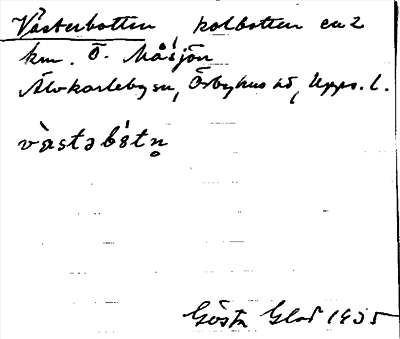 Västerbotten kolbotten ca 2
km. Ö. Måsjön
Älvkarleby sn, Örbyhus hd, Upps. l.
västəbɔ́tn̥
Gösta Glad 1935